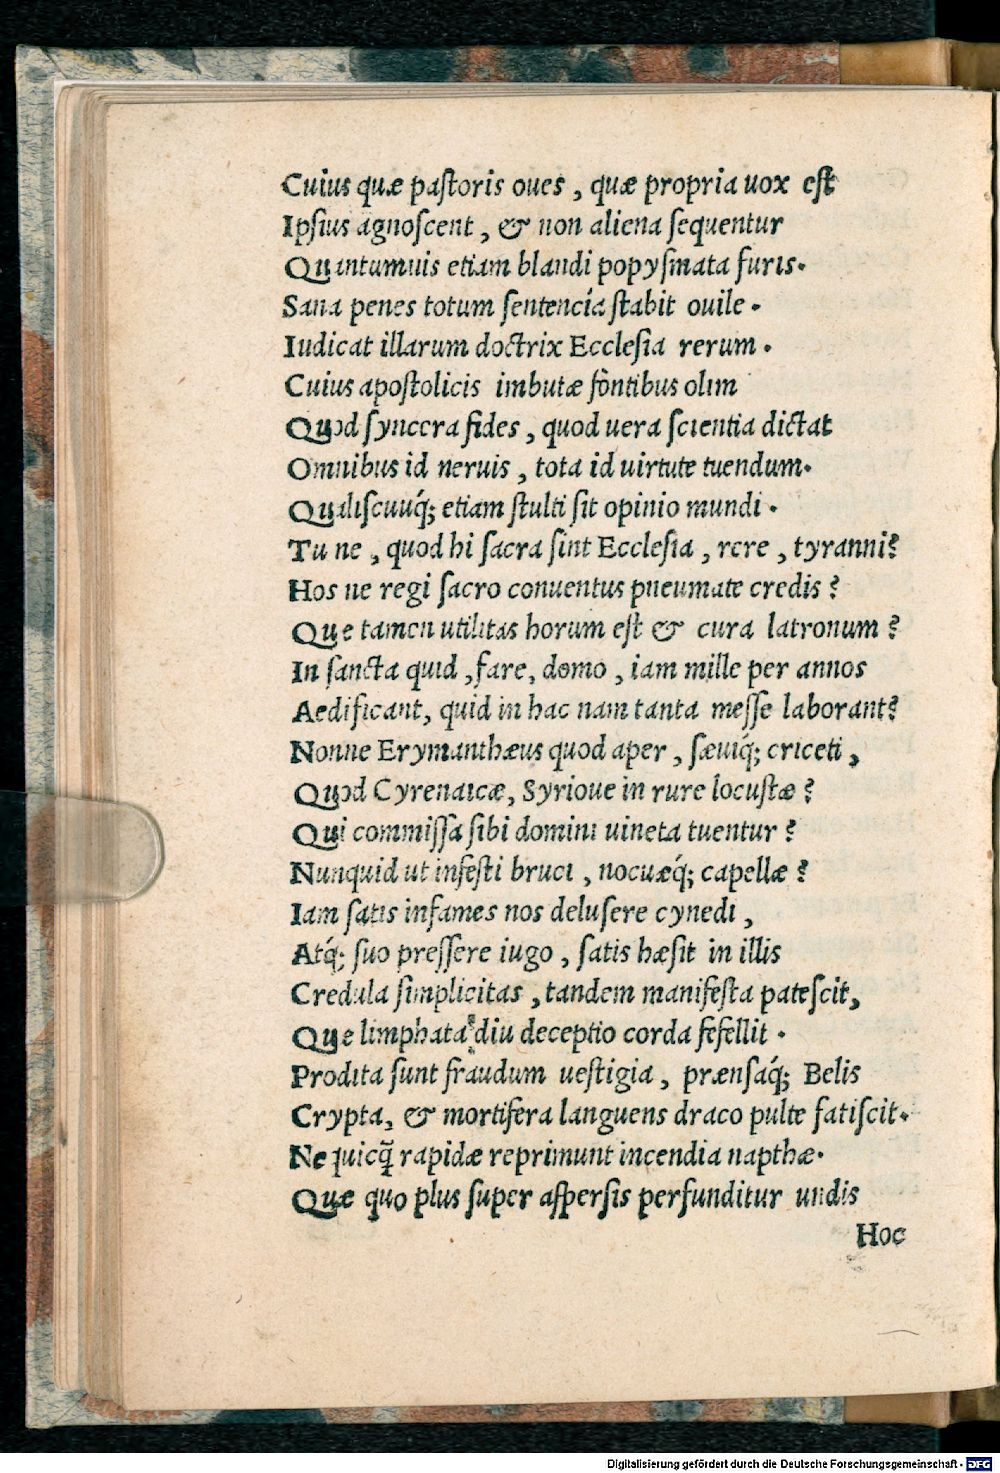 Cuius quæ paſtoris oues, quæ propria uox eſt
Ipſius agnoſcent, & non aliena ſequentur
Quantumuis etiam blandi popyſmata furis.
Sana penes totum ſentencia ſtabit ouile.
Iudicat illarum doctrix Eccleſia rerum.
Cuius apoſtolicis imbutæ fontibus olim
Quod ſyncera fides, quod uera ſcientia dictat
Omnibus id neruis, tota id uirtute tuendum.
Qualiſcuuq́; etiam ſtulti ſit opinio mundi.
Tu ne, quod hi ſacra ſint Eccleſia, rere, tyranni?
Hos ne regi ſacro conuentus pneumate credis?
Que tamen utilitas horum eſt & cura latronum?
In ſancta quid, fare, domo, iam mille per annos
Aedificant, quid in hac nam tanta meſſe laborant?
Nonne Erymanthæus quod aper, ſæuiq́; criceti,
Quod Cyrenaicæ, Syrioue in rure locuſtæ?
Qui commiſſa ſibi domini uineta tuentur?
Nunquid ut infeſti bruci, nocuæq́; capellæ?
Iam ſatis infames nos deluſere cynedi,
Atq́; ſuo preſſere iugo, ſatis hæſit in illis
Credula ſimplicitas, tandem manifeſta pateſcit,
Que limphata diu deceptio corda fefellit.
Prodita ſunt fraudum ueſtigia, prænſaq́; Belis
Crypta, & mortifera languens draco pulte fatiſcit.
Ne quicq̃ rapidæ reprimunt incendia napthæ.
Quæ quo plus ſuper aſperſis perfunditur undis
Hoc
Digitalisierung gefördert durch die Deutsche Forschungsgemeinschaft - DFG